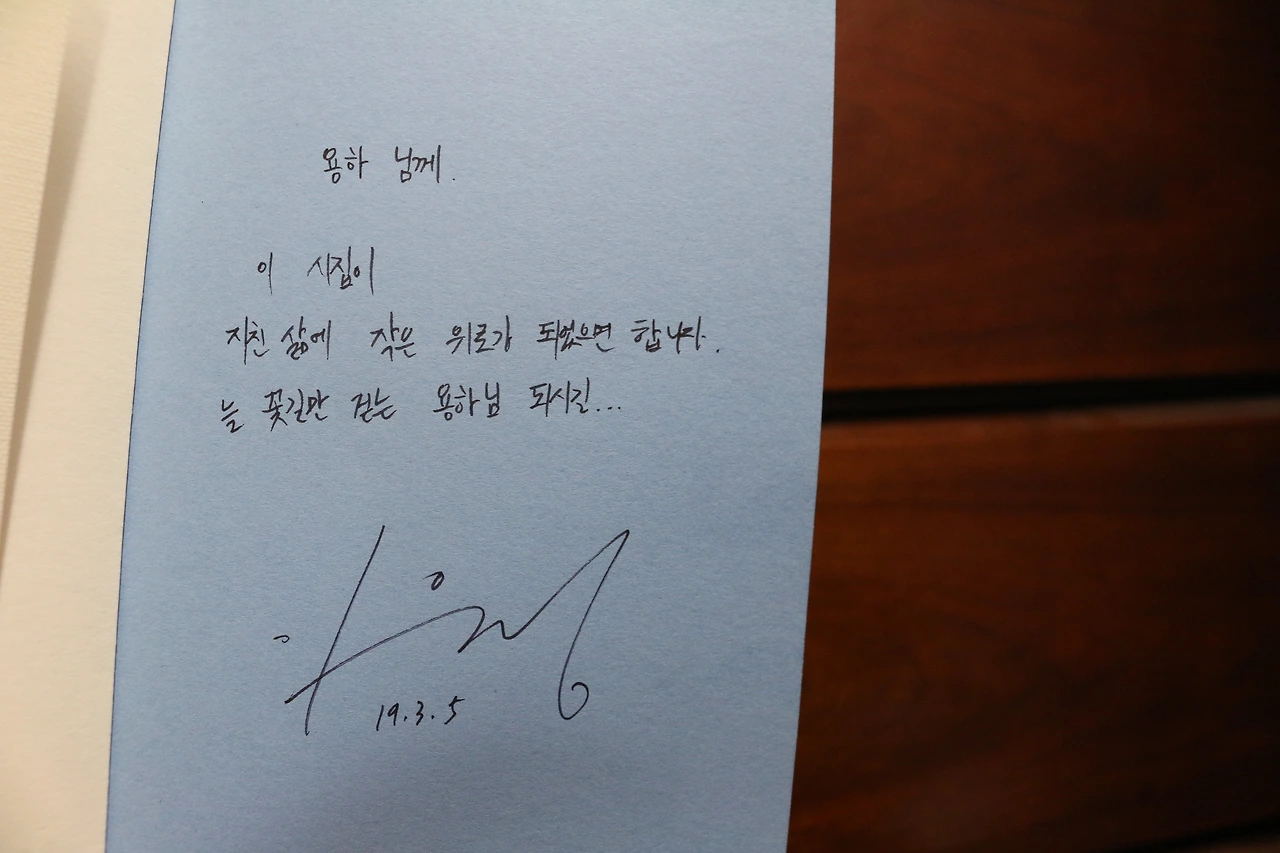 용하 님께.
이 시집이
지친 삶에 작은 위로가 되었으면 합니다.
늘 꽃길만 걷는 용하님 되시길...
19.3.5